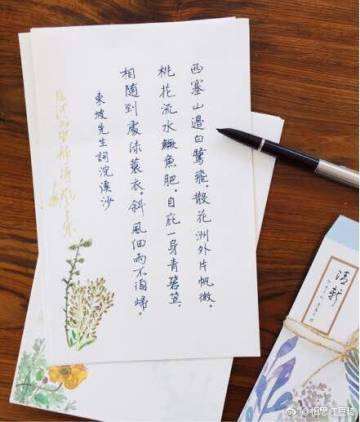 西塞山邊白鷺飛。散花洲外片帆微。
桃花流水鱖魚肥。自庇一身青箬笠。
相隨到處綠蓑衣。斜風細雨不須歸。
東坡先生詞浣溪沙
清新